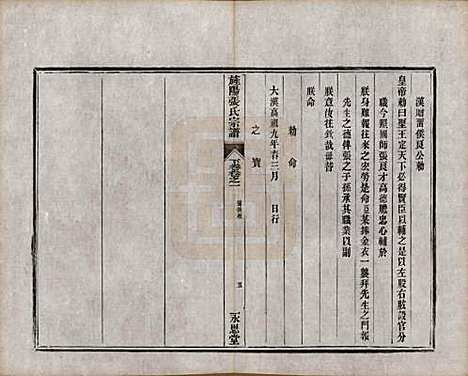 漢賜留侯良公勅
皇帝勅曰聖王定天下必得賢臣以輔之設以左股右肱設官分
職今照國師張良才高德膽忠心輔於
朕身難報往來宏勞是命臣某捧金衣一襲拜先生之門報
先生之德俾張之子孫承其職業以副
朕意汝往欽哉毋替
朕命
大漢高祖九年春三月　日行
勅命
之寶
旌陽張氏宗譜
卷之一
五
永思堂